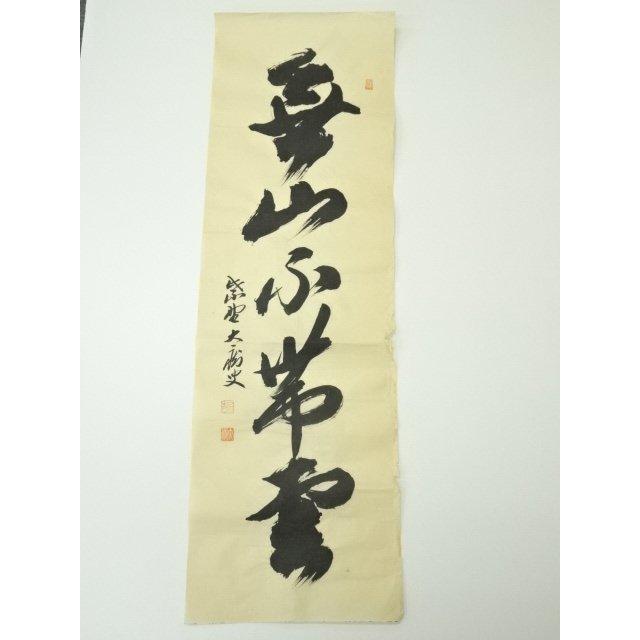 無山不帯雲
紫野 大